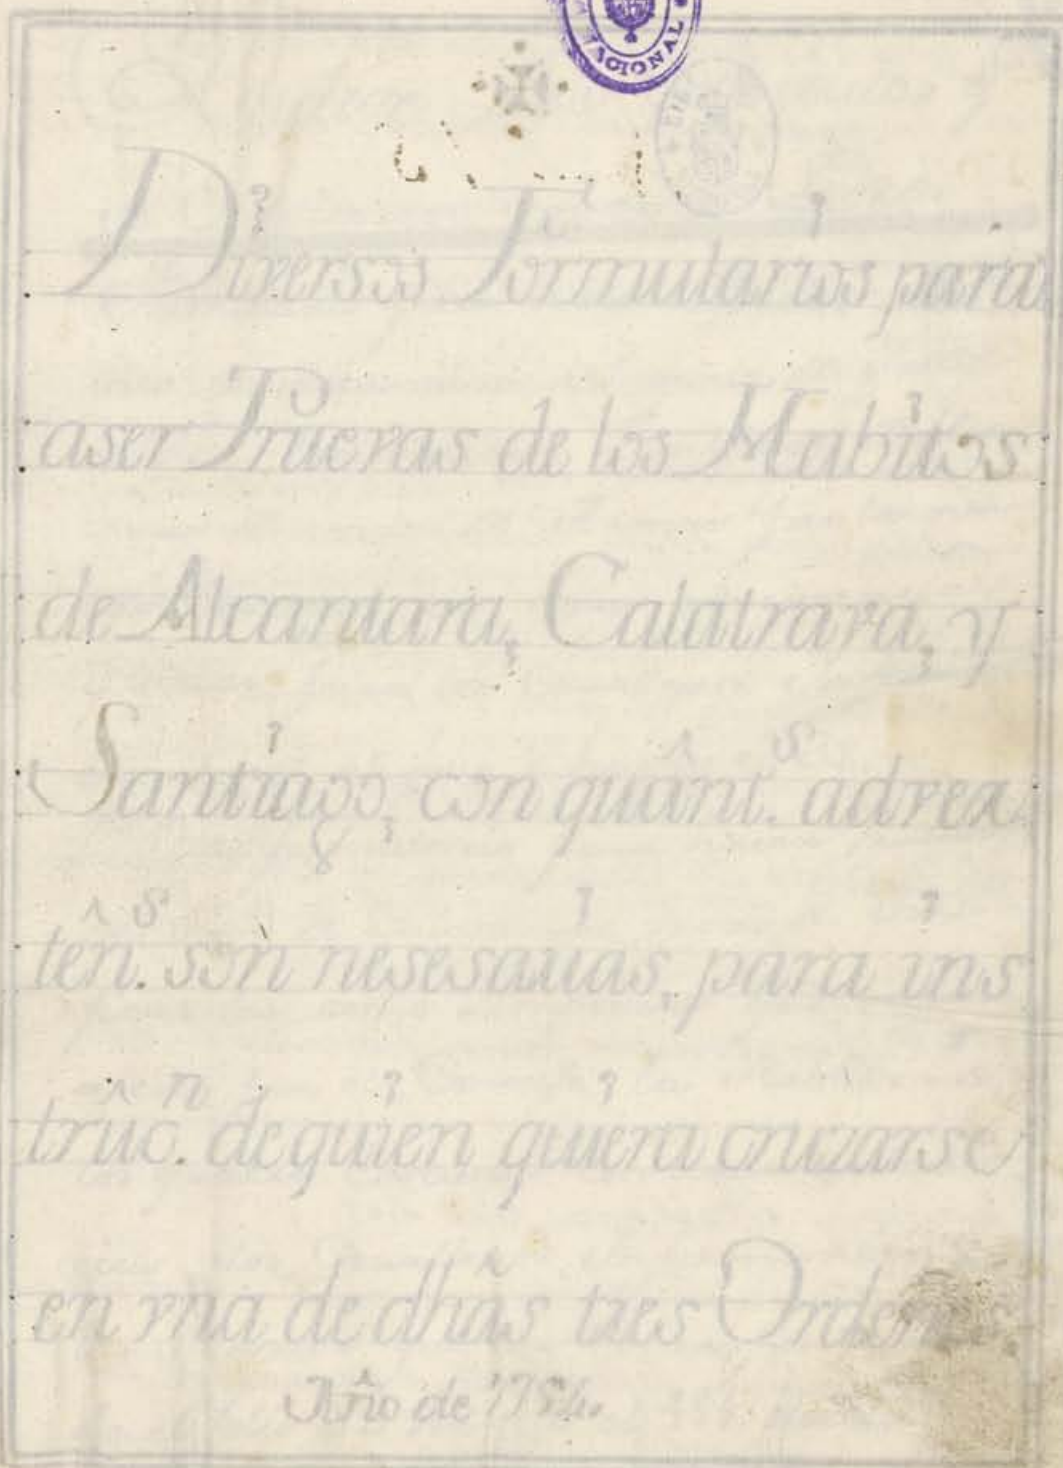 NACIONAL
Diversos Formularios para
aser Pruevas de los Habitos
de Alcantara, Calatrava, y
Santiago, con quânt.s adver
tên.s son nesesarias, para ins
trûc.n de quien quiera cruzarse
en vna de dhâs tres Ordenes
Año de